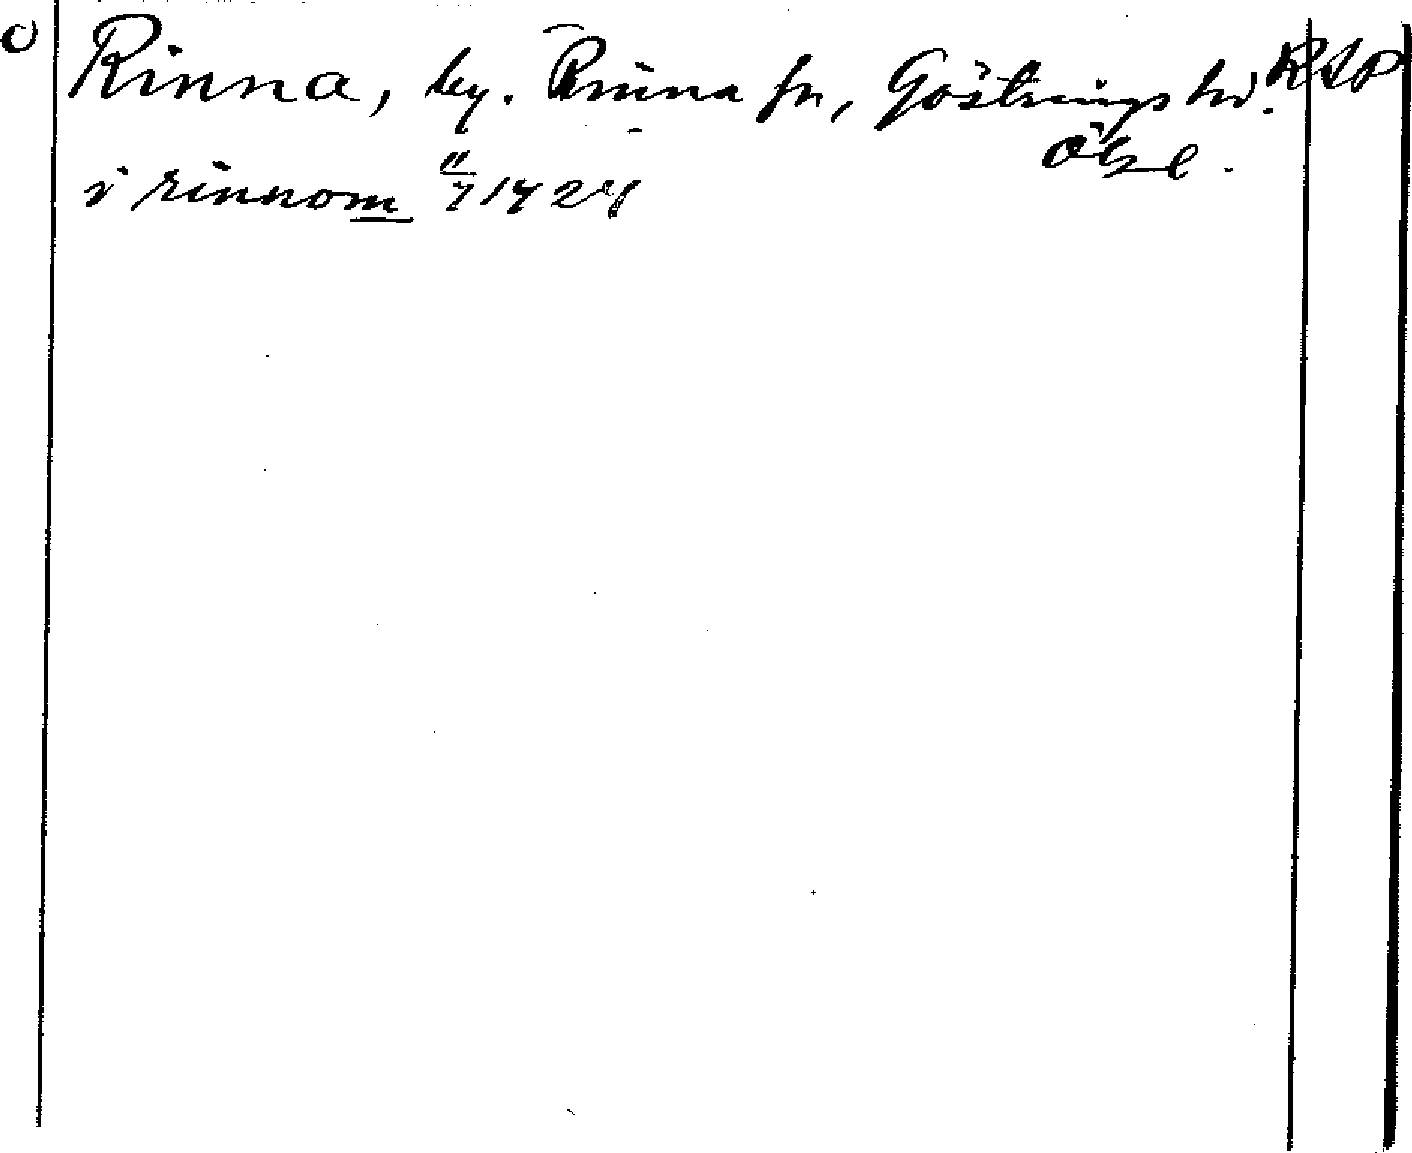 Rinna, by. Rinna sn, Göstrings hd. RAP
Ögl.
i rinnom 11/7 1424